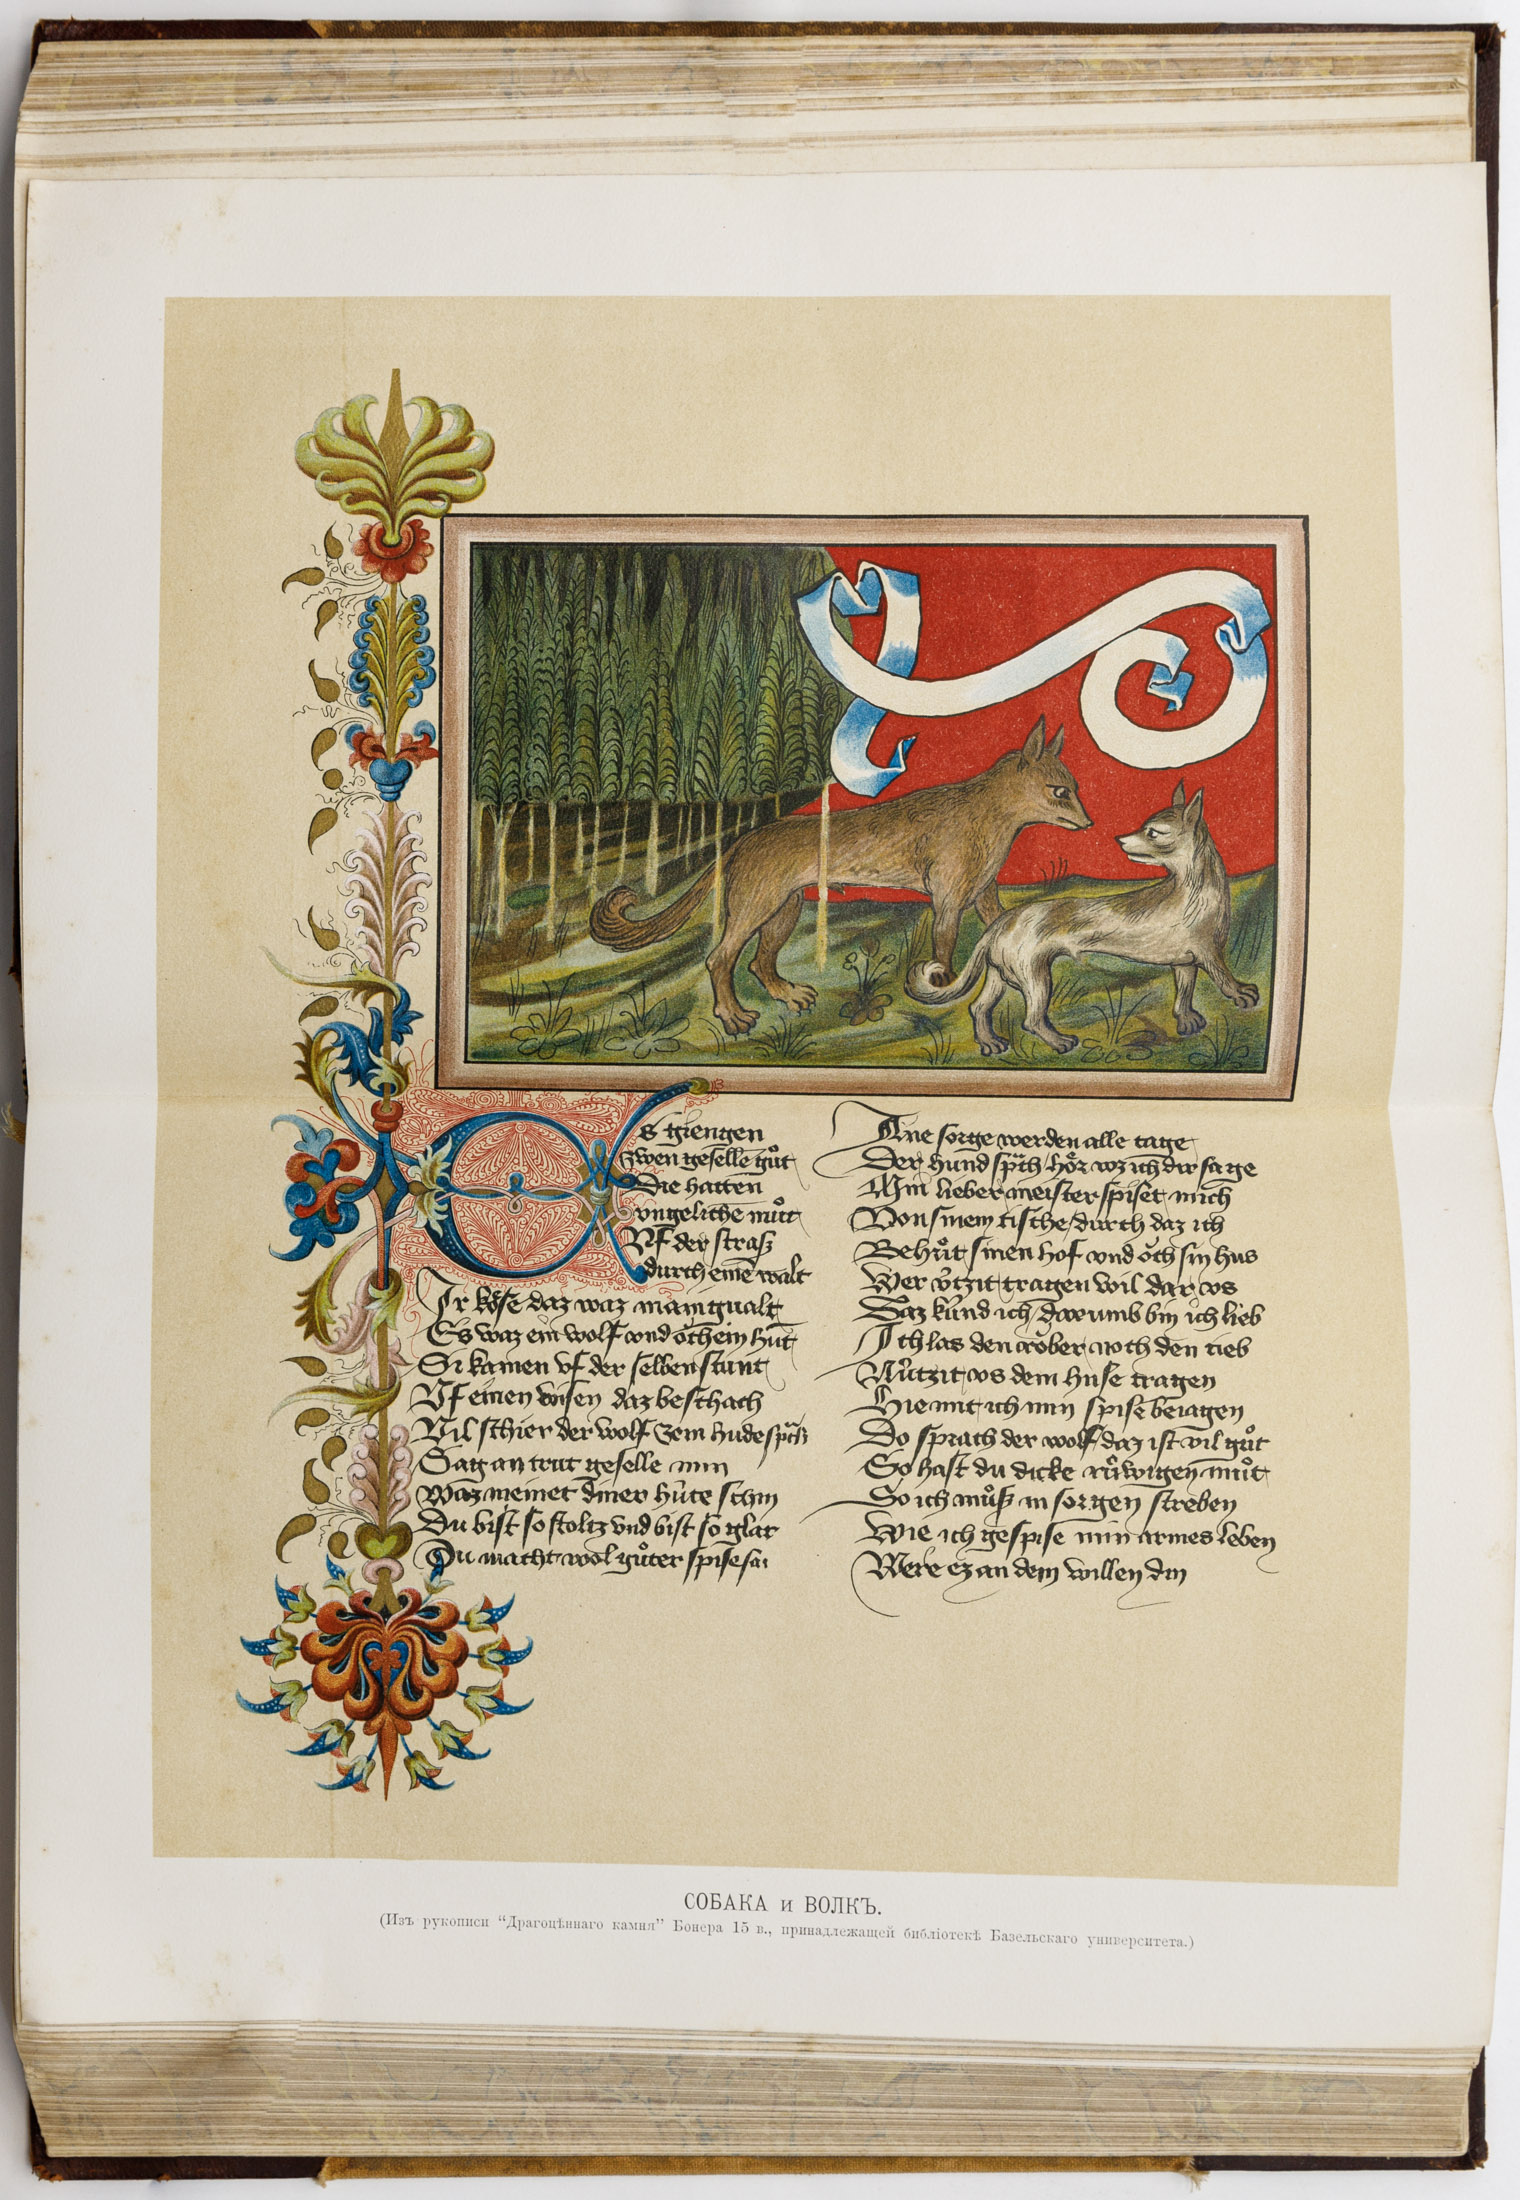 Es giengen
zwen geselle gůt
Die hatten
vngeliche můt
Vf der straß
durch eine walt
Ir köse daz waz manigualt
Es waz ein wolf vnd öch ein hunt
Si kamen vf der selben stunt
Vf einen wisen daz beschach
Vil schier der wolf zem hude sprach
Sag an trut geselle min
Waz meinet diner hüte schin
Du bist so stoltz vnd bist so glat
Du macht wol gůter spise sat
Ane sorge werden alle tage
Der hund sprach hör wz ich dir sage
Min lieber meister spiset mich
Von sinem tische durch daz ich
Behůt sinen hof vnd öch sin hus
Wer ützit tragen wil dar vs
Daz künd ich dar umb bin ich lieb
Ich las den röber noch den tieb
Nützit vs dem huse tragen
Hie mit ich min spise beiagen
Do sprach der wolf daz ist vil gůt
So hast du dicke růwigen můt
So ich můß in sorgen streben
Wie ich gespise min armes leben
Were ez an dem willen din
СОБАКА и ВОЛКЪ.
(Изъ рукописи "Драгоцѣннаго камня" Бонера 15 в., принадлежащей библіотекѣ Базельскаго университета.)